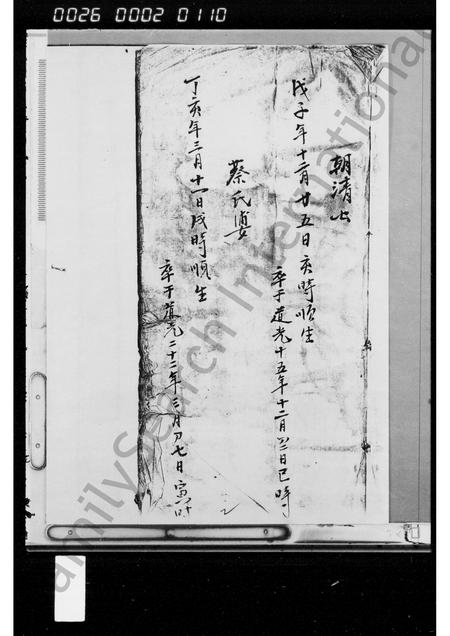 0026 0002 0110
朝清公
戊子年十二月廿五日亥時順生
卒于道光十五年十二月 日巳時
蔡氏
丁亥年三月十一日戌時順生
卒于道光二十二年三月初七日寅時
FamilySearch International